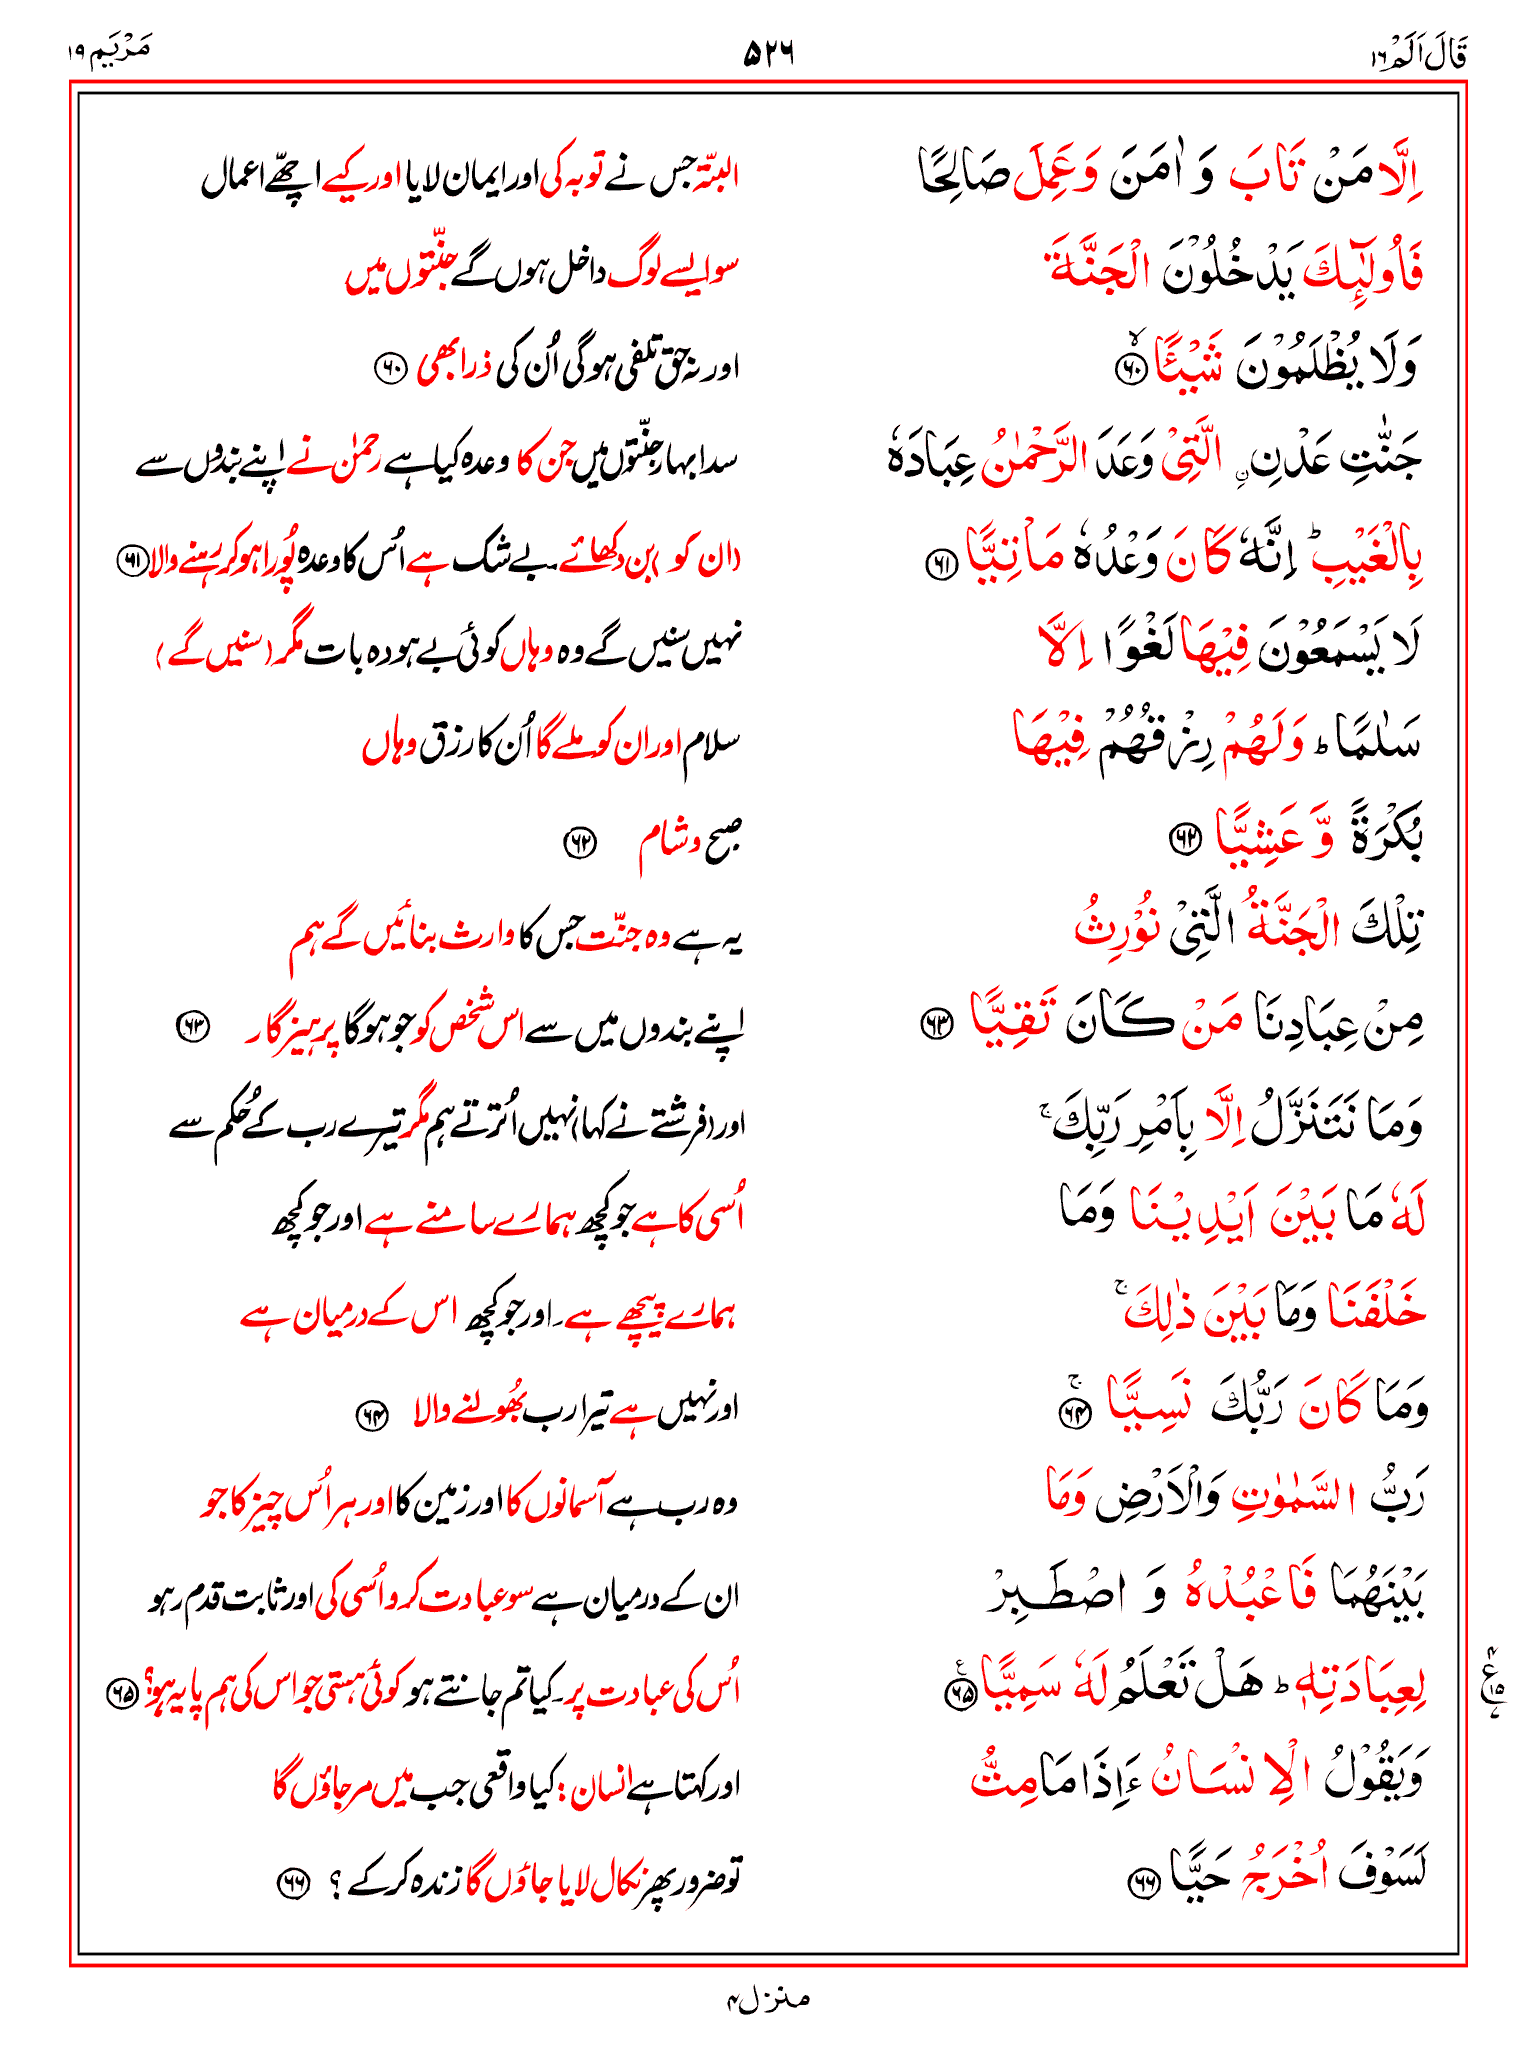 قَالَ اَلَمْ ١٦ ۵۲۶ مَرْيَم ١٩
اِلَّا مَنْ تَابَ وَ اٰمَنَ وَعَمِلَ صَالِحًا البتہّ جس نے توبہ کی اور ایمان لایا اور کیے اچھّے اعمال
فَاُولٰٓئِكَ يَدْخُلُوْنَ الْجَنَّةَ سو ایسے لوگ داخل ہوں گے جنّتوں میں
وَلَا يُظْلَمُوْنَ شَيْـًٔا ۙ‏﴿۶۰﴾ اور نہ حق تلفی ہوگی اُن کی ذرا بھی ﴿۶۰﴾
جَنّٰتِ عَدْنِ ۨ الَّتِىْ وَعَدَ الرَّحْمٰنُ عِبَادَهٗ سدابہار جنّتوں میں جن کا وعدہ کیا ہے رحمٰن نے اپنے بندوں سے
بِالْغَيْبِ ؕ اِنَّهٗ كَانَ وَعْدُهٗ مَاْتِيًّا ﴿۶۱﴾ (ان کو) بن دکھائے۔ بے شک ہے اُس کا وعدہ پُورا ہو کر رہنے والا ﴿۶۱﴾
لَا يَسْمَعُوْنَ فِيْهَا لَغْوًا اِلَّا نہیں سنیں گے وہ وہاں کوئی بے ہودہ بات مگر (سنیں گے)
سَلٰمًا ؕ وَلَهُمْ رِزْقُهُمْ فِيْهَا سلام اور ان کو ملے گا اُن کا رزق وہاں
بُكْرَةً وَّ عَشِيًّا ﴿۶۲﴾ صبح و شام ﴿۶۲﴾
تِلْكَ الْجَنَّةُ الَّتِىْ نُوْرِثُ یہ ہے وہ جنّت جس کا وارث بنائیں گے ہم
مِنْ عِبَادِنَا مَنْ كَانَ تَقِيًّا ﴿۶۳﴾ اپنے بندوں میں سے اس شخص کو جو ہوگا پرہیزگار ﴿۶۳﴾
وَمَا نَتَنَزَّلُ اِلَّا بِاَمْرِ رَبِّكَ ۚ اور (فرشتے نے کہا) نہیں اُترتے ہم مگر تیرے رب کے حُکم سے
لَهٗ مَا بَيْنَ اَيْدِيْنَا وَمَا اُسی کا ہے جو کچھ ہمارے سامنے ہے اور جو کچھ
خَلْفَنَا وَمَا بَيْنَ ذٰلِكَ ۚ ہمارے پیچھے ہے۔ اور جو کچھ اس کے درمیان ہے
وَمَا كَانَ رَبُّكَ نَسِيًّا ۚ‏﴿۶۴﴾ اور نہیں ہے تیرا رب بھُولنے والا ﴿۶۴﴾
رَبُّ السَّمٰوٰتِ وَالْاَرْضِ وَمَا وہ رب ہے آسمانوں کا اور زمین کا اور ہر اُس چیز کا جو
بَيْنَهُمَا فَاعْبُدْهُ وَ اصْطَبِرْ ان کے درمیان ہے سو عبادت کرو اُسی کی اور ثابت قدم رہو
لِعِبَادَتِهٖ ؕ هَلْ تَعْلَمُ لَهٗ سَمِيًّا ﴿۶۵﴾ع اُس کی عبادت پر۔ کیا تم جانتے ہو کوئی ہستی جو اس کی ہم پایہ ہو؟ ﴿۶۵﴾
وَيَقُوْلُ الْاِنْسَانُ ءَاِذَا مَا مِتُّ اور کہتا ہے انسان : کیا واقعی جب میں مر جاؤں گا
لَسَوْفَ اُخْرَجُ حَيًّا ﴿۶۶﴾ تو ضرور پھر نکال لایا جاؤں گا زندہ کر کے ؟ ﴿۶۶﴾
منزل ۴